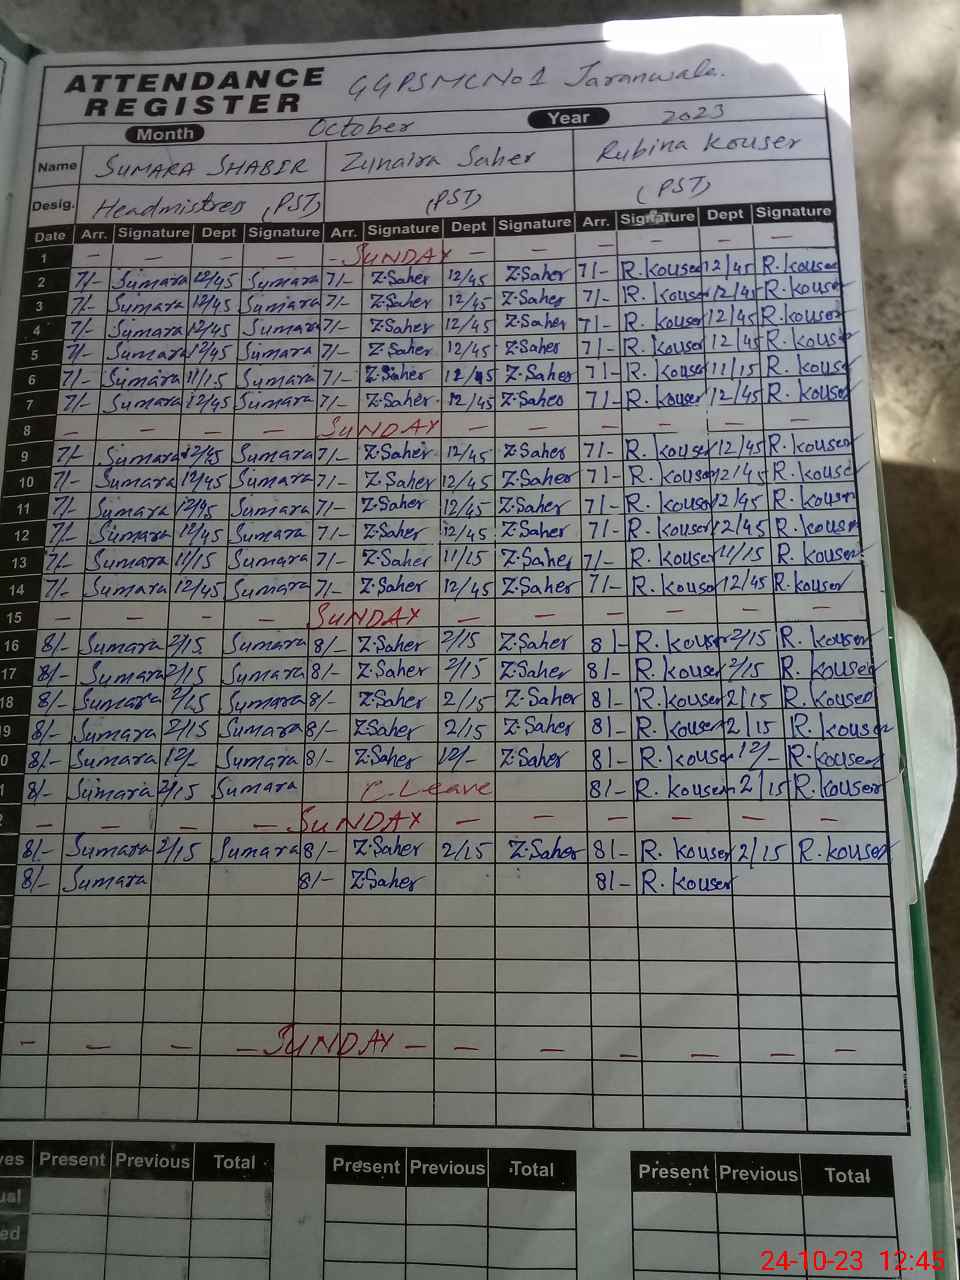 ATTENDANCE REGISTER GGPSMCNo1 Jaranwala.
Month October Year 2023
Name SUMARA SHABIR Zunaira Saher Rubina Kouser
Desig. Headmistress (PST) (PST) (PST)
Date Arr. Signature Dept Signature Arr. Signature Dept Signature Arr. Signature Dept Signature
1 – – – – – SUNDAY – – – – – –
2 7/- Sumara 12/45 Sumara 7/- Z.Saher 12/45 Z.Saher 7/- R.Kouser 12/45 R.Kouser
3 7/- Sumara 12/45 Sumara 7/- Z.Saher 12/45 Z.Saher 7/- R.Kouser 12/45 R.Kouser
4 7/- Sumara 12/45 Sumara 7/- Z.Saher 12/45 Z.Saher 7/- R.Kouser 12/45 R.Kouser
5 7/- Sumara 12/45 Sumara 7/- Z.Saher 12/45 Z.Saher 7/- R.Kouser 12/45 R.Kouser
6 7/- Sumara 11/15 Sumara 7/- Z.Saher 7/- R.Kouser 11/15 R.Kouser
7 7/- Sumara 12/45 Sumara 7/- Z.Saher 12/45 Z.Saher 7/- R.Kouser 12/45 R.Kouser
8 – – – – SUNDAY – – – – – –
9 7/- Sumara 12/45 Sumara 7/- Z.Saher 12/45 Z.Saher 7/- R.Kouser 12/45 R.Kouser
10 7/- Sumara 12/45 Sumara 7/- Z.Saher 12/45 Z.Saher 7/- R.Kouser 12/45 R.Kouser
11 7/- Sumara 12/45 Sumara 7/- Z.Saher 12/45 Z.Saher 7/- R.Kouser 12/45 R.Kouser
12 7/- Sumara 12/45 Sumara 7/- Z.Saher 12/45 Z.Saher 7/- R.Kouser 12/45 R.Kouser
13 7/- Sumara 11/15 Sumara 7/- Z.Saher 11/15 Z.Saher 7/- R.Kouser 11/15 R.Kouser
14 7/- Sumara 12/45 Sumara 7/- Z.Saher 12/45 Z.Saher 7/- R.Kouser 12/45 R.Kouser
15 – – – – SUNDAY – – – – – –
16 8/- Sumara 2/15 Sumara 8/- Z.Saher 2/15 Z.Saher 8/- R.Kouser 2/15 R.Kouser
17 8/- Sumara 2/15 Sumara 8/- Z.Saher 2/15 Z.Saher 8/- R.Kouser 2/15 R.Kouser
18 8/- Sumara 2/15 Sumara 8/- Z.Saher 2/15 Z.Saher 8/- R.Kouser 2/15 R.Kouser
9 8/- Sumara 2/15 Sumara 8/- ZSaher 2/15 Z.Saher 8/- R.Kouser 2/15 R.Kouser
0 8/- Sumara 12/- Sumara 8/- Z.Saher 12/- Z.Saher 8/- R.Kouser 12/- R.Kouser
1 8/- Sumara 2/15 Sumara C.Leave 8/- R.Kouser 2/15 R.Kouser
2 – – – – SUNDAY – – – – – –
8/- Sumara 2/15 Sumara 8/- Z.Saher 2/15 Z.Saher 8/- R.Kouser 2/15 R.Kouser
8/- Sumara 8/- Z.Saher 8/- R.Kouser
– – – – SUNDAY – – – – – – –
ves Present Previous Total Present Previous Total Present Previous Total
ual
ed
24-10-23 12:45